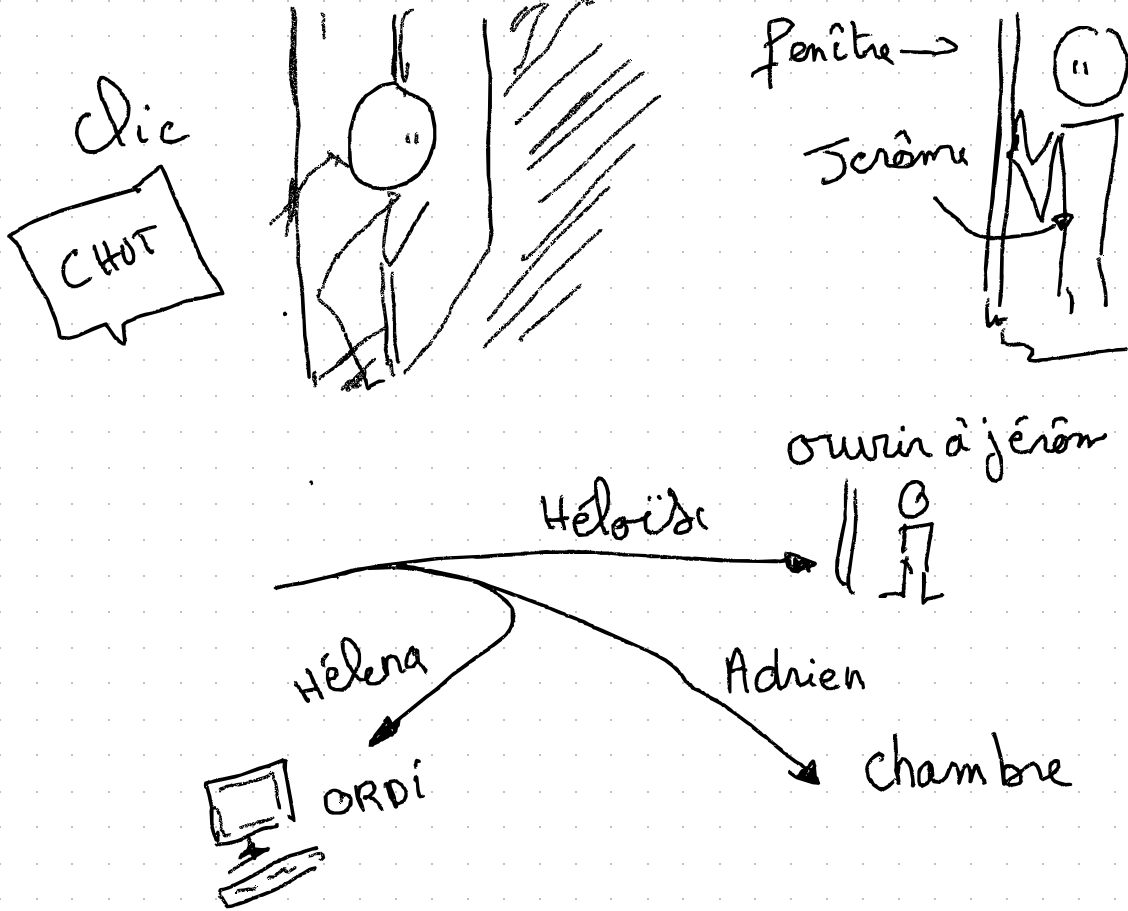 Clic
CHUT
fenître
Jérôme
ouvrir à jérôm
Héloïse
Héléna
Adrien
ORDI
chambre